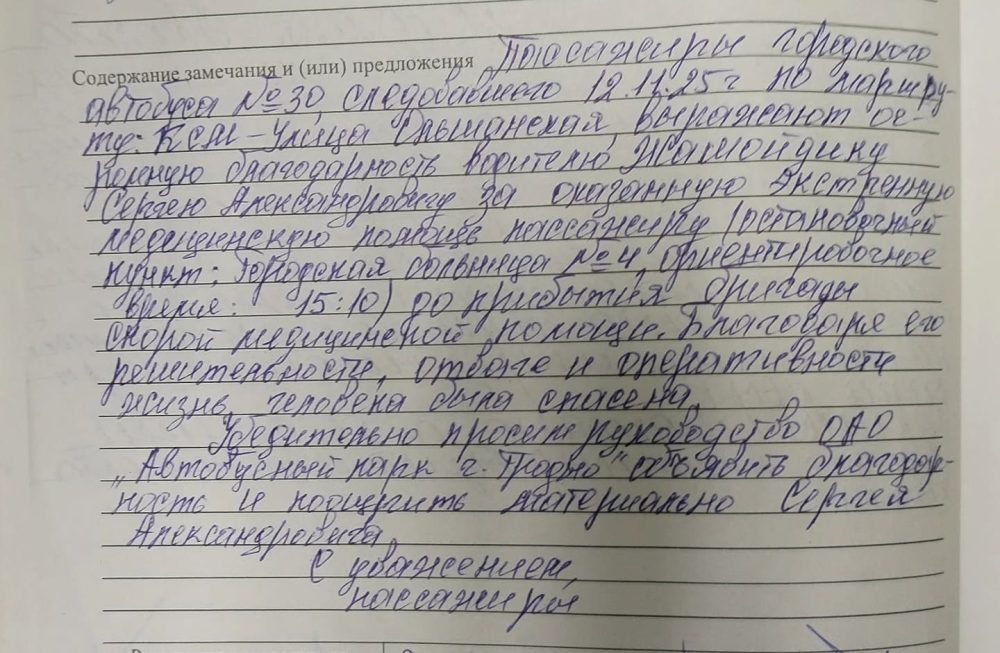 Содержание замечания и (или) предложения Пассажиры городского
автобуса №30, следовавшего 12.11.25г по маршру-
ту: КСМ – Улица Ольшанская, выражают ог-
ромную благодарность водителю, Жамойдину
Сергею Александровичу за оказанную экстренную
медицинскую помощь пассажиру (остановочный
пункт: Городская больница №4, ориентировочное
время: 15:10) до прибытия бригады
скорой медицинской помощи. Благодаря его
решительности, отваге и оперативности
жизнь человека была спасена.
Убедительно просим руководство ОАО
„Автобусный парк г. Гродно" объявить благодар-
ность и поощрить материально Сергея
Александровича.
С уважением,
пассажиры